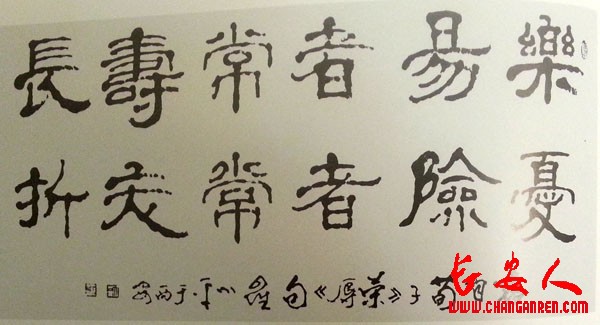 樂易者常壽長
憂險者常夭折
荀子《荣辱》句 于西安
长安人
WWW.CHANGANREN.COM